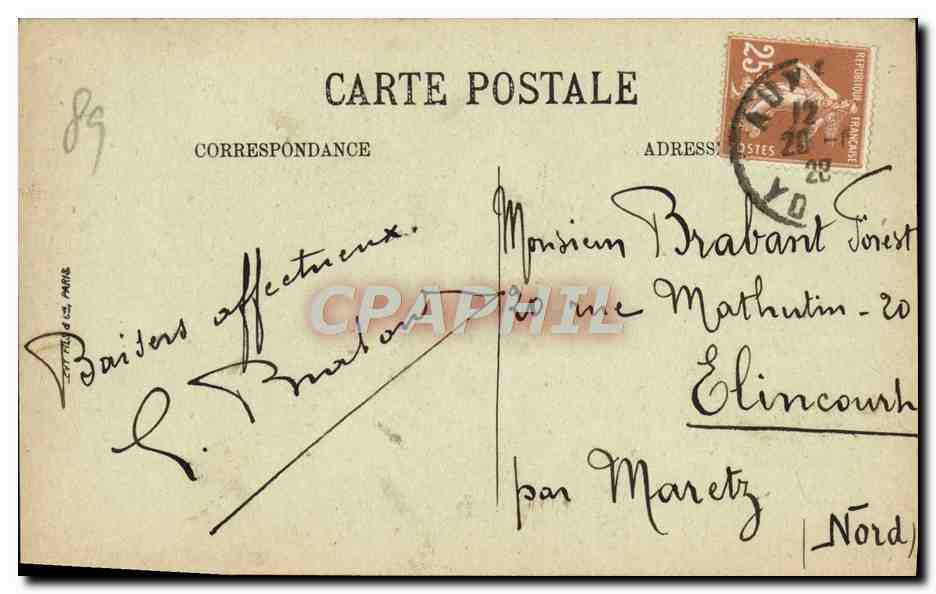 CARTE POSTALE
CORRESPONDANCE
ADRESSE
25
REPUBLIQUE FRANÇAISE
POSTES
12
20 -1
28
89
Baisers affectueux.
G. Brabant
LEVY FILS & Cie, PARIS
Monsieur Brabant Forest
20 rue Mathutin - 20
Elincourt
par Maretz
(Nord)
CPAPHIL